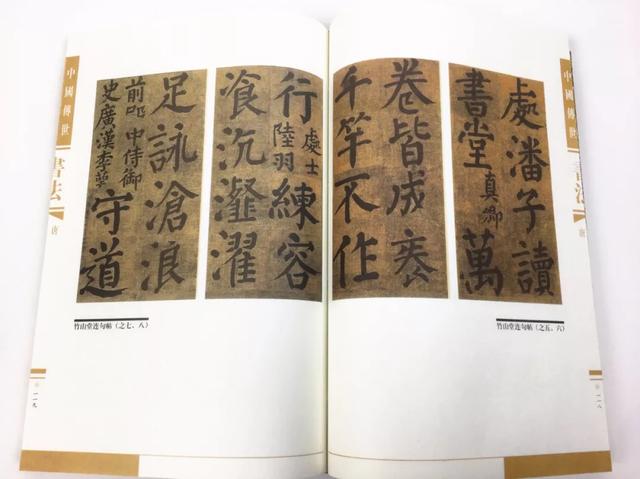 中國傳世
書法
唐
處潘子讀
書堂真卿萬
卷皆成袠
千竿不作
竹山堂連句帖（之五、六）
一一八
行處士
陸羽練容
飡沆瀣濯
足詠滄浪
前殿中侍御
史廣漢李萼守道
竹山堂連句帖（之七、八）
中國傳世
書法
唐
一一九